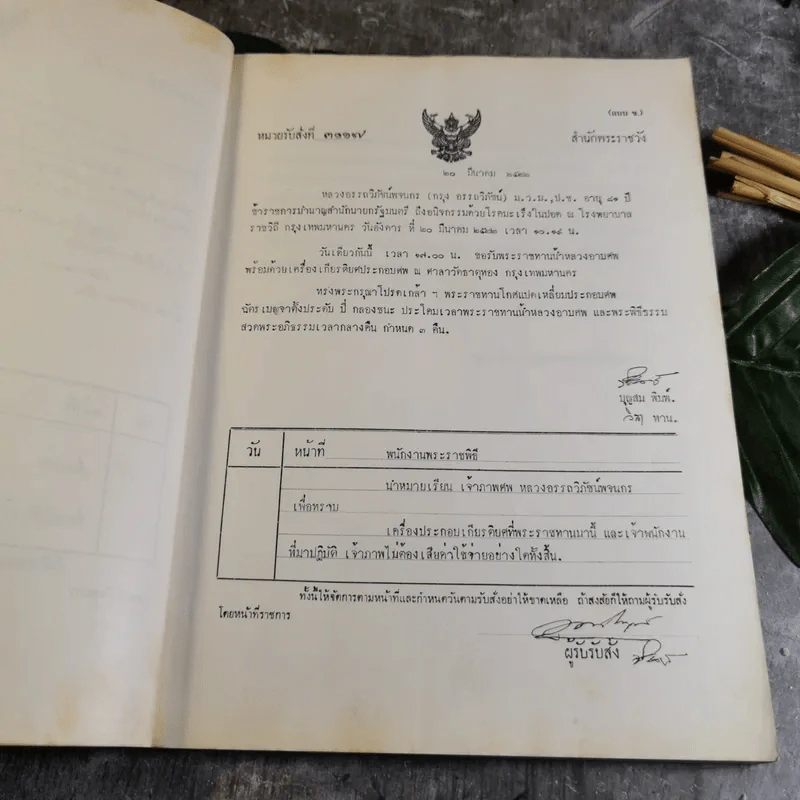 (แบบ ข.)
หมายรับสั่งที่ ๓๑๑๗
สำนักพระราชวัง
๒๐ มีนาคม ๒๕๒๒
หลวงอรรถวิภัชน์พจนกร (กรุง อรรถวิภัชน์) ม.ว.ม.,ป.ช. อายุ ๘๑ ปี
ข้าราชการบำนาญสำนักนายกรัฐมนตรี ถึงอนิจกรรมด้วยโรคมะเร็งในปอด ณ โรงพยาบาล
ราชวิถี กรุงเทพมหานคร วันอังคาร ที่ ๒๐ มีนาคม ๒๕๒๒ เวลา ๑๐.๑๕ น.
วันเดียวกันนี้ เวลา ๑๗.๐๐ น. ขอรับพระราชทานน้ำหลวงอาบศพ
พร้อมด้วยเครื่องเกียรติยศประกอบศพ ณ ศาลาวัดธาตุทอง กรุงเทพมหานคร
ทรงพระกรุณาโปรดเกล้า ฯ พระราชทานโกศแปดเหลี่ยมประกอบศพ
ฉัตรเบญจาตั้งประดับ ปี่ กลองชนะ ประโคมเวลาพระราชทานน้ำหลวงอาบศพ และพระพิธีธรรม
สวดพระอภิธรรมเวลากลางคืน กำหนด ๓ คืน.
บุญสม พิมพ์.
ทาน.
วัน หน้าที่ พนักงานพระราชพิธี
นำหมายเรียน เจ้าภาพศพ หลวงอรรถวิภัชน์พจนกร
เพื่อทราบ
เครื่องประกอบเกียรติยศที่พระราชทานมานี้ และเจ้าพนักงาน
ที่มาปฏิบัติ เจ้าภาพไม่ต้องเสียค่าใช้จ่ายอย่างใดทั้งสิ้น.
ทั้งนี้ให้จัดการตามหน้าที่และกำหนดวันตามรับสั่งอย่าให้ขาดเหลือ ถ้าสงสัยก็ให้ถามผู้รับรับสั่ง
โดยหน้าที่ราชการ
ผู้รับรับสั่ง